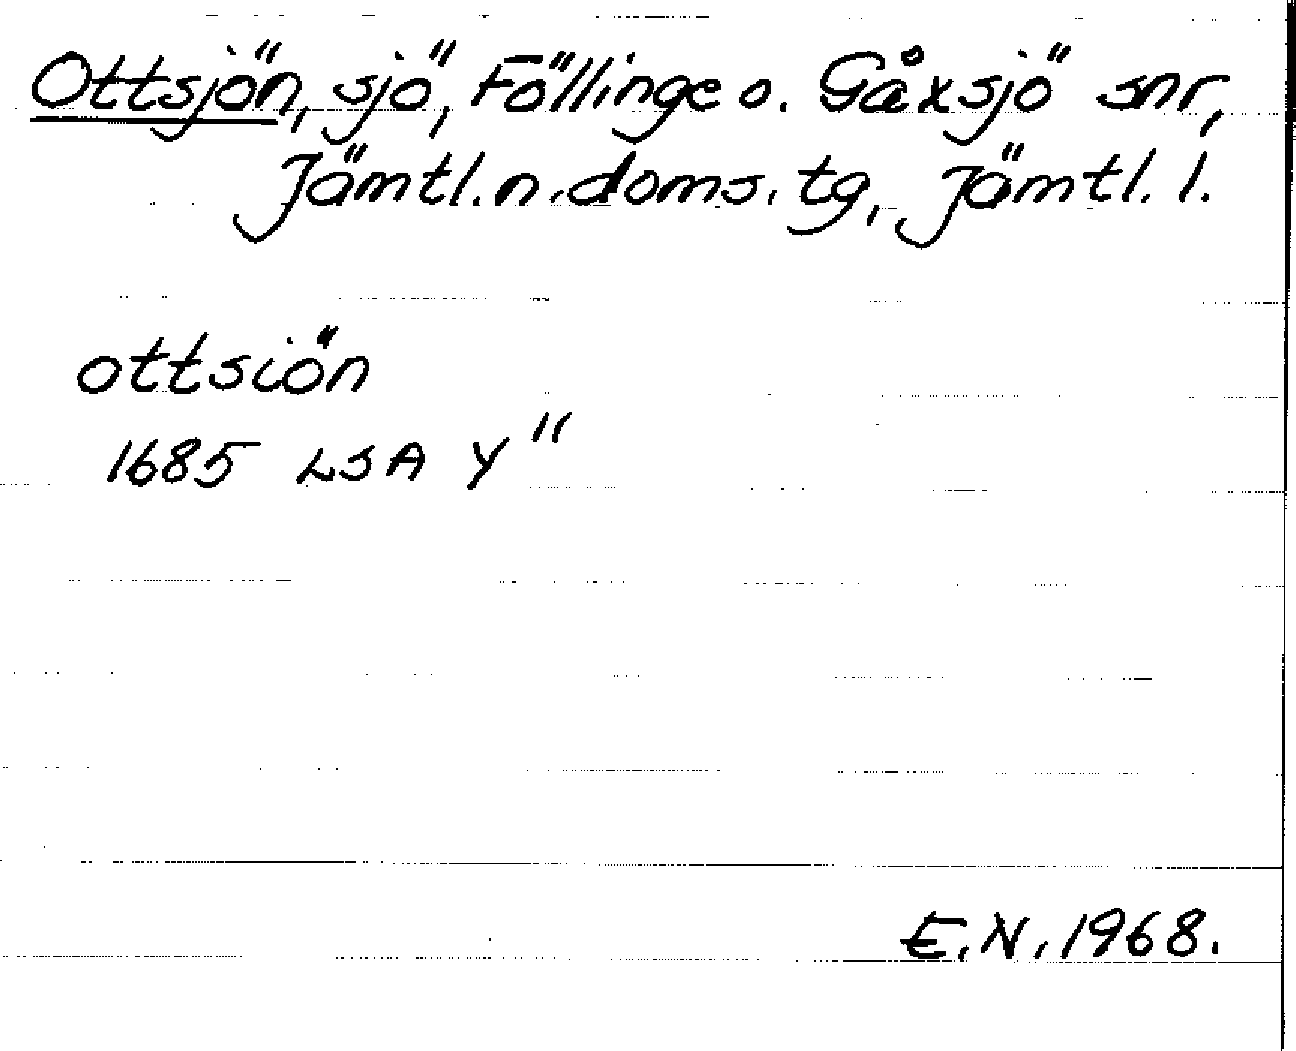 Ottsjön, sjö, Föllinge o. Gåxsjö snr,
Jämtl. n. doms. tg, Jämtl. l.
ottsiön
1685 LSA Y"
E.N. 1968.